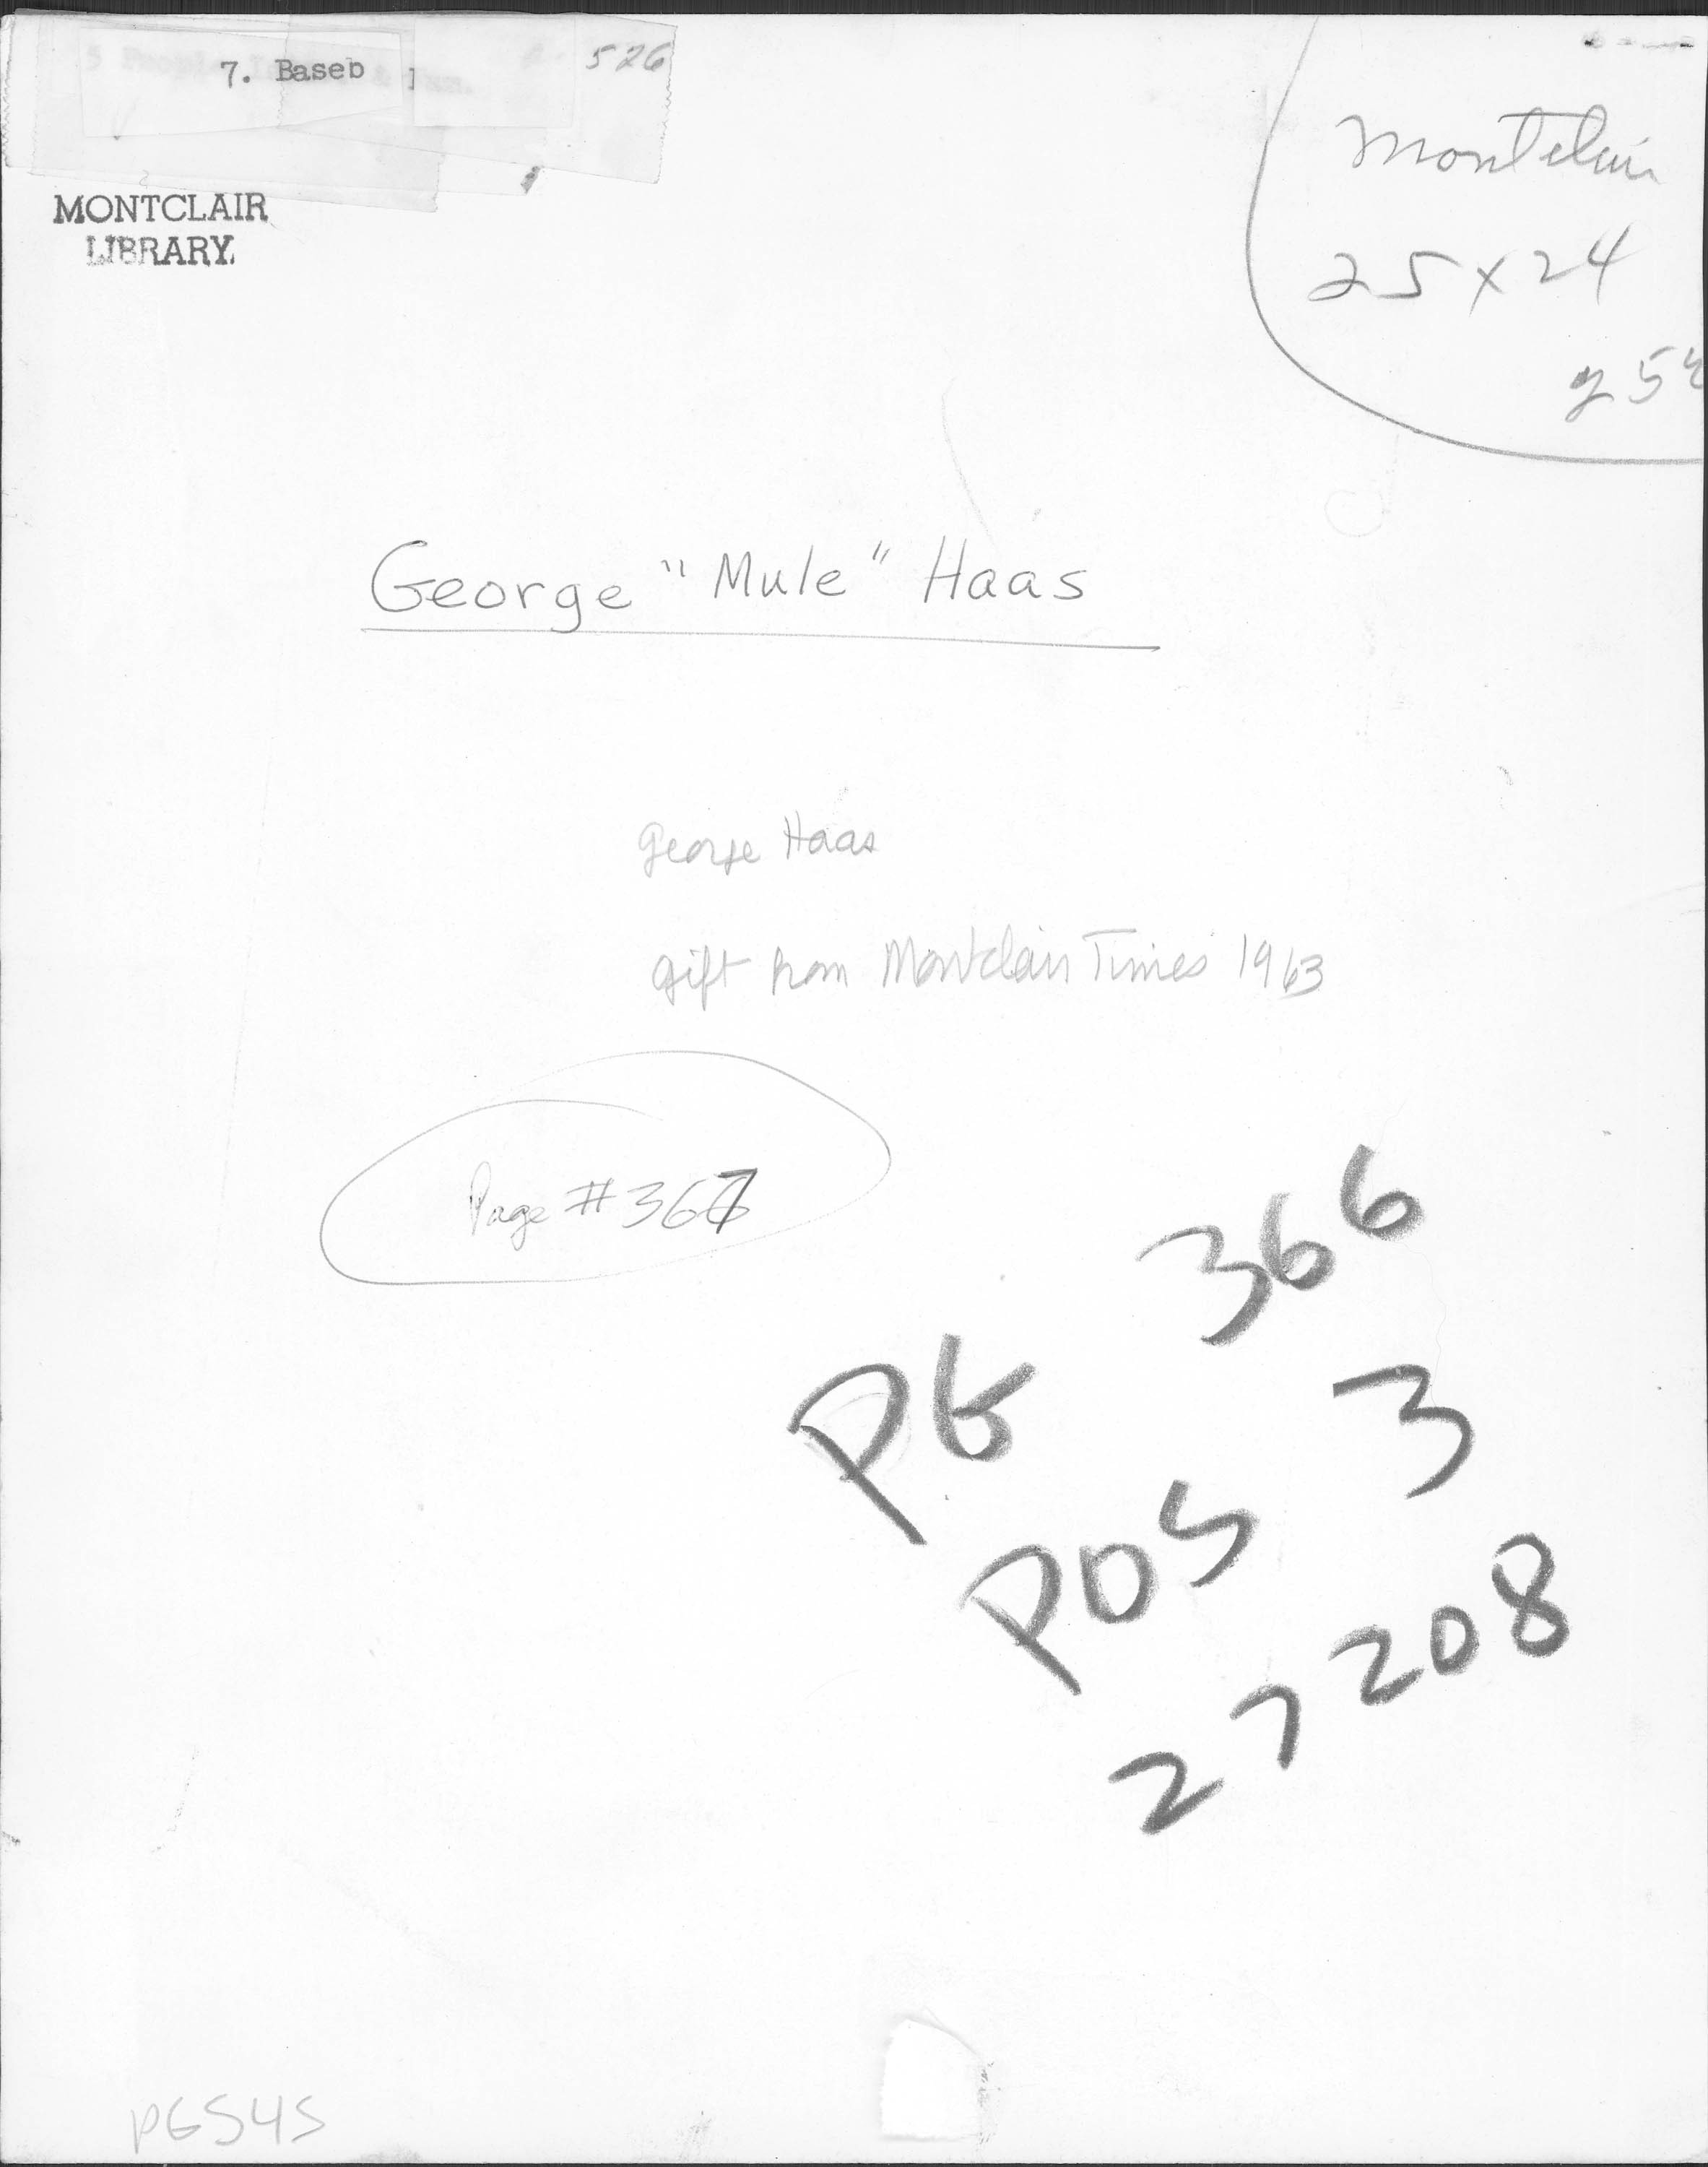 7. Baseb l
526
MONTCLAIR
LIBRARY.
Montclair
25 x 24
George "Mule" Haas
George Haas
Gift from Montclair Times 1963
Page #367
PG 366
POS 3
27208
PG545